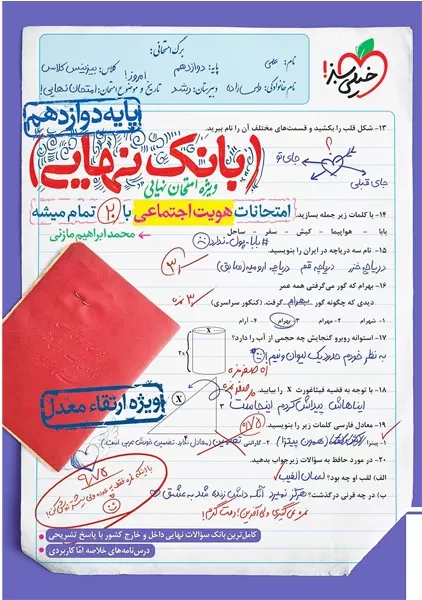 برگ امتحانی:
خیلی سبز!
نام: علی
پایه: دوازدهم
کلاس: بیزینس کلاس
نام خانوادگی:
دبیرستان: رشد
تاریخ و موضوع امتحان: امروز! امتحان نهایی!
پایه دوازدهم
۱۳- شکل قلب را بکشید و قسمت‌های مختلف آن را نام ببرید.
جای تو
جای قبلی
(بانک نهایی)
ویژه امتحان نهایی
امتحانات هویت اجتماعی با ۲۰ تمام میشه
محمد ابراهیم مازنی
۱۴- با کلمات زیر جمله بسازید.
بابا - هواپیما - کیش - سفر - ساحل
#بابا-پول-ندارد
۱۵- نام سه دریاچه در ایران را بنویسید.
دریاچه خزر دریاچه قم دریاچه ارومیه (سابق)
۱۶- بهرام که گور می‌گرفتی همه عمر
دیدی که چگونه گور بهرام گرفت. (کنکور سراسری)
۱- شهرام ۲- مهرام ۳- بهرام ۴- آرام
۱۷- استوانه روبرو گنجایش چه حجمی از آب را دارد؟
به نظر خودم حدود یک لیوان و نیم!
۱۸- با توجه به قضیه فیثاغورت X را بیابید.
ایناهاش پیداش کردم اینجاست
ویژه ارتقاء معدل
۱۹- معادل فارسی کلمات زیر را بنویسید.
۱- پیتزا (همون پیتزا) ۲- گارانتی
۲۰- در مورد حافظ به سؤالات زیر جواب بدهید.
الف) لقب او چه بود؟ لسان الغیب
ب) در چه قرنی درگذشت؟ هرگز نمیرد آنکه دلش زنده شد به عشق
۹/۷۵
کامل‌ترین بانک سؤالات نهایی داخل و خارج کشور با پاسخ تشریحی
درس‌نامه‌های خلاصه اما کاربردی